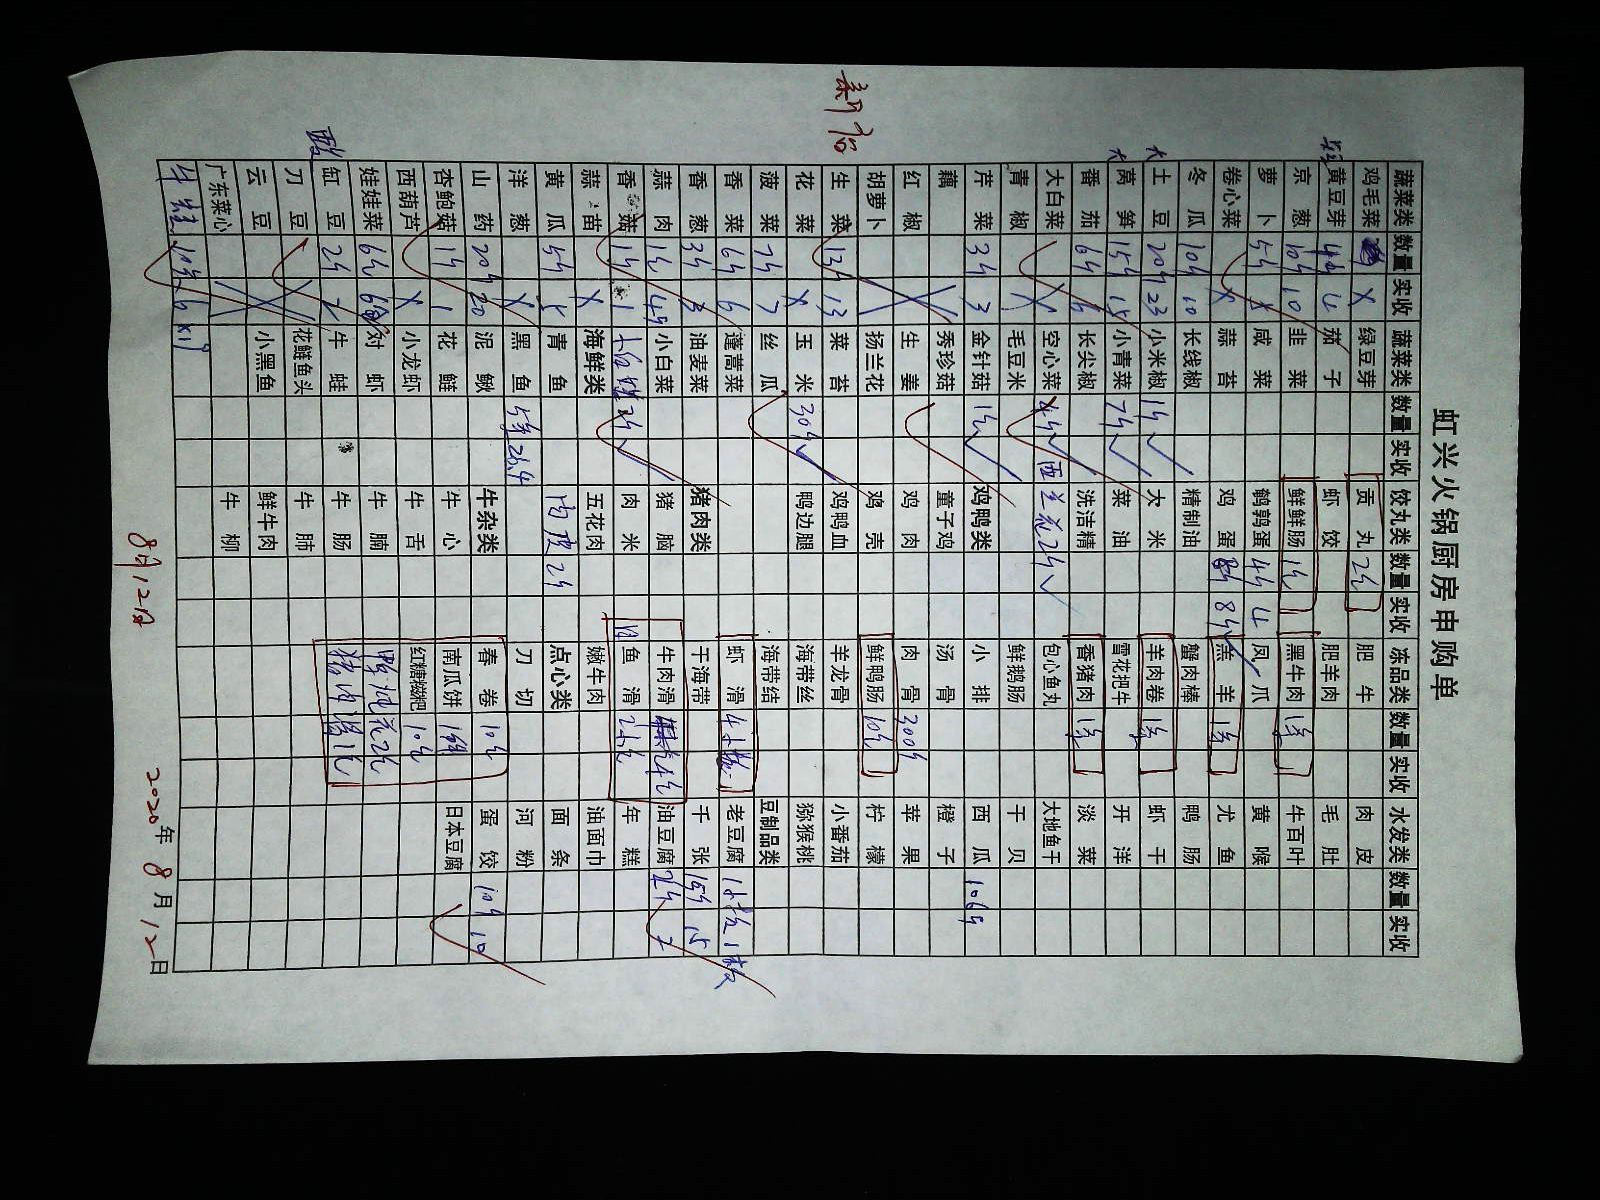 虹兴火锅厨房申购单
蔬菜类 数量 实收 蔬菜类 数量 实收 饺丸类 数量 实收 冻品类 数量 实收 水发类 数量 实收
鸡毛菜 X 绿豆芽 贡丸 2包 肥牛 肉皮
黄豆芽 茄子 虾饺 肥羊肉 毛肚
京葱 10斤 10 韭菜 鲜鲜肠 1包 黑牛肉 1包 牛百叶
萝卜 5斤 咸菜 鹌鹑蛋 4斤 4 凤爪 黄喉
卷心菜 X 蒜苔 鸡蛋 8斤 羔羊 尤鱼
冬瓜 10斤 10 长线椒 精制油 蟹肉棒 鸭肠
大 土豆 20斤 23 小米椒 1斤 大米 羊肉卷 虾干
大 莴笋 15斤 15 小青菜 7斤 菜油 雪花把牛 开洋
番茄 6斤 6 长尖椒 洗洁精 香猪肉 淡菜
大白菜 X 空心菜 4斤 西兰花2斤 包心鱼丸 大地鱼干
青椒 毛豆米 鲜鹅肠 干贝
芹菜 3斤 3 金针菇 1包 鸡鸭类 小排 西瓜 106斤
藕 秀珍菇 童子鸡 汤骨 橙子
红椒 X 生姜 鸡肉 肉骨 300斤 苹果
胡萝卜 扬兰花 鸡壳 鲜鸭肠 10包 柠檬
生菜 13斤 13 菜苔 鸡鸭血 羊龙骨 小番茄
花菜 X 玉米 30斤 鸭边腿 海带丝 猕猴桃
菠菜 7斤 7 丝瓜 海带结 豆制品类
香菜 6斤 6 蓬蒿菜 虾滑 老豆腐 1板 1板
香葱 3斤 3 油麦菜 猪肉类 干海带 千张 15斤 15
蒜肉 小白菜 猪脑 牛肉滑 油豆腐 2斤 2
香菇 1斤 1 肉米 鱼滑 年糕
蒜苗 X 海鲜类 五花肉 嫩牛肉 油面巾
黄瓜 5斤 5 青鱼 肉皮 2斤 点心类 面条
洋葱 X 黑鱼 5条 26.4 刀切 河粉
山药 20斤 20 泥鳅 牛杂类 春卷 10包 蛋饺 10斤 10
杏鲍菇 1斤 1 花鲢 牛心 南瓜饼 日本豆腐
西葫芦 X 小龙虾 牛舌 红糖糍粑 10包
娃娃菜 对虾 牛腩
酸 缸豆 2斤 2 牛蛙 牛肠
刀豆 X 花鲢鱼头 牛肺
云豆 X 小黑鱼 鲜牛肉
广东菜心 牛柳
牛蛙
新店
8月12日
2020年8月12日